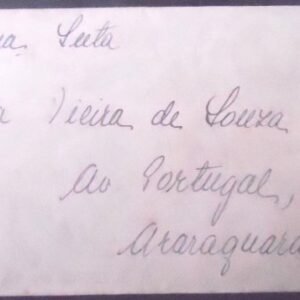 na. Sueta
a Vieira de Souza
Av Portugal,
Araraquara